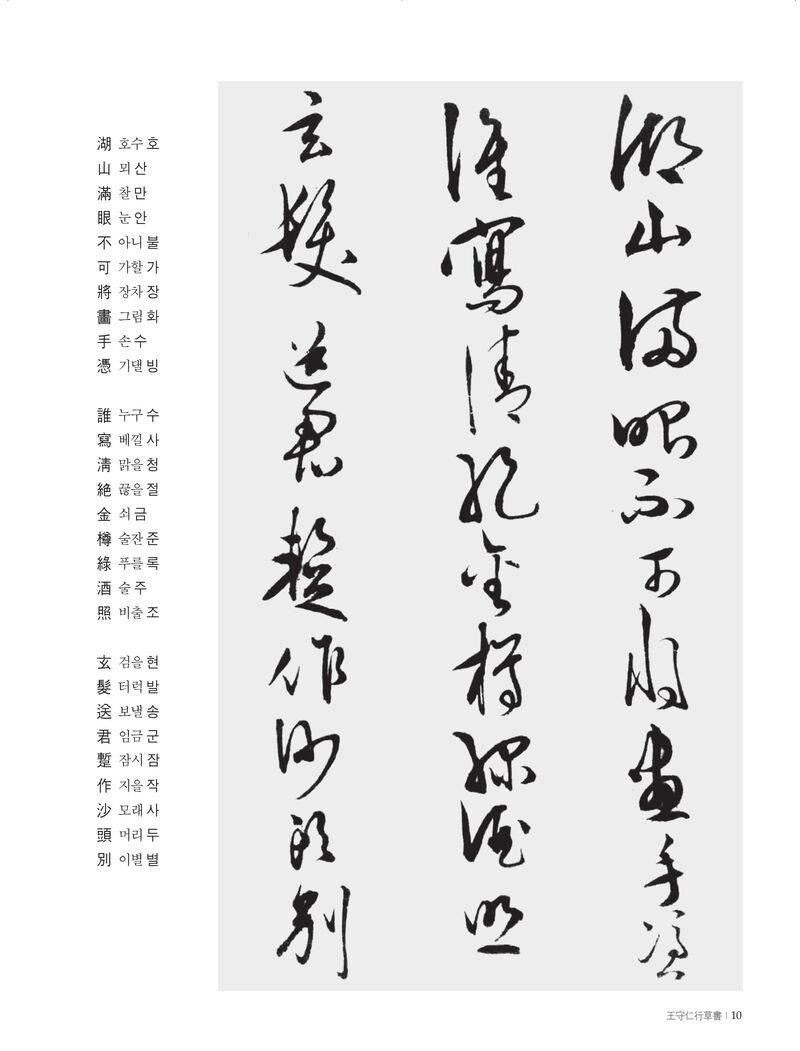 湖 호수 호
山 뫼 산
滿 찰 만
眼 눈 안
不 아니 불
可 가할 가
將 장차 장
畵 그림 화
手 손 수
憑 기댈 빙
誰 누구 수
寫 베낄 사
淸 맑을 청
絶 끊을 절
金 쇠 금
樽 술잔 준
綠 푸를 록
酒 술 주
照 비출 조
玄 검을 현
髮 터럭 발
送 보낼 송
君 임금 군
蹔 잠시 잠
作 지을 작
沙 모래 사
頭 머리 두
別 이별 별
湖山滿眼不可將畵手憑
誰寫淸絶金樽綠酒照
玄髮送君蹔作沙頭別
王守仁行草書 | 10